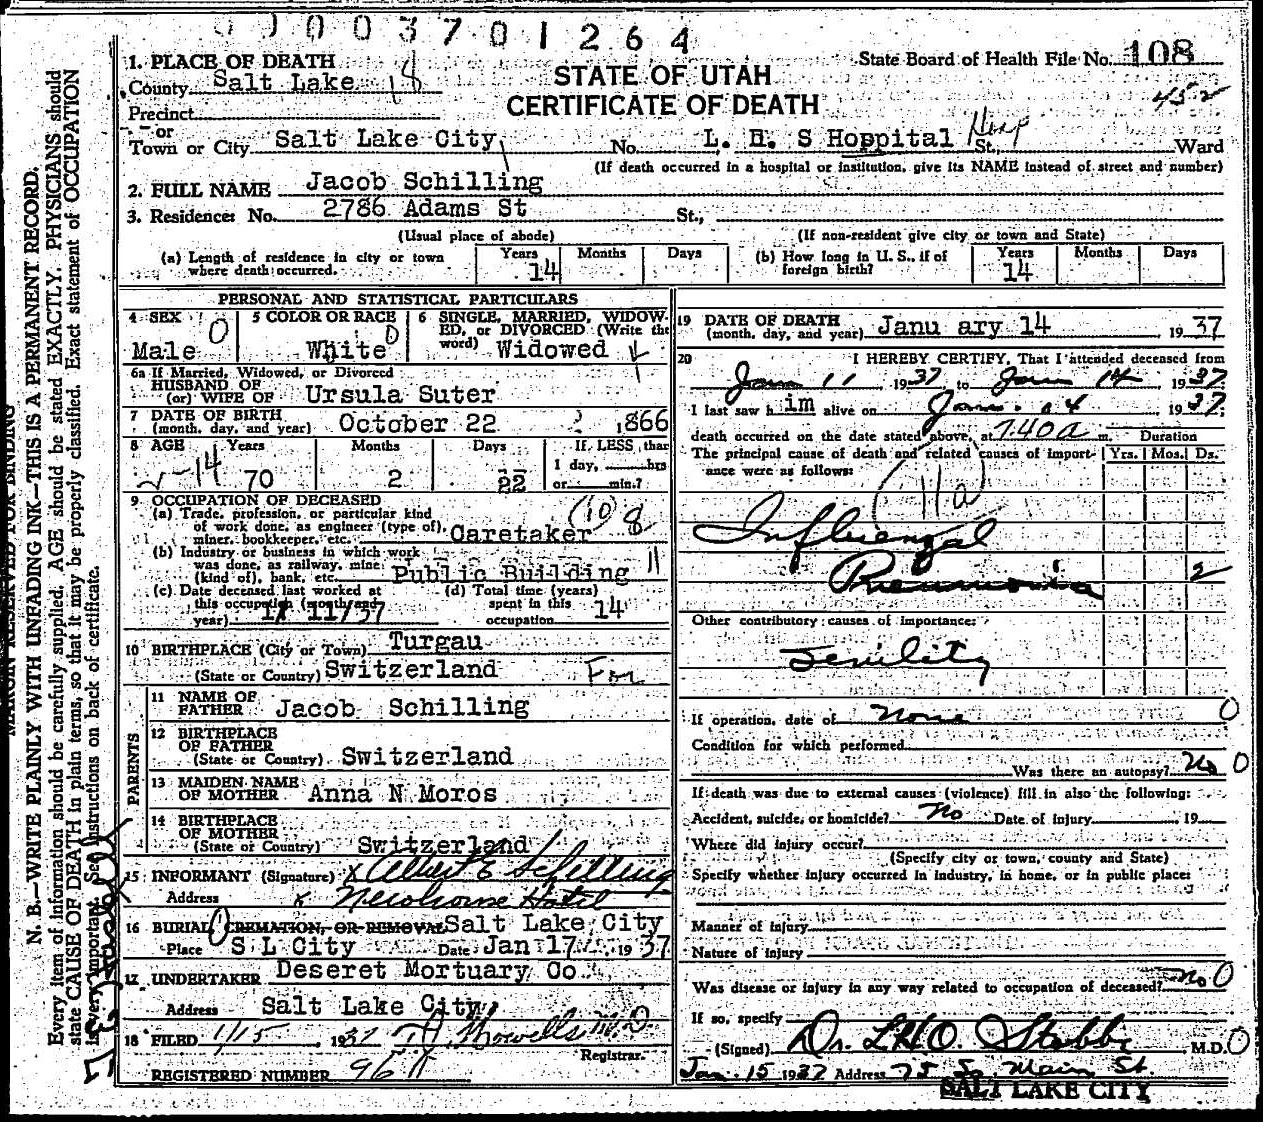 0003701264
State Board of Health File No. 108
1. PLACE OF DEATH
STATE OF UTAH
CERTIFICATE OF DEATH
County Salt Lake 18
452
Precinct
or
Town or City Salt Lake City No. L. D. S Hospital Hosp St., Ward
(If death occurred in a hospital or institution, give its NAME instead of street and number)
2. FULL NAME Jacob Schilling
3. Residence: No. 2786 Adams St St.,
(Usual place of abode) (If non-resident give city or town and State)
(a) Length of residence in city or town where death occurred. Years 14 Months Days
(b) How long in U. S., if of foreign birth? Years 14 Months Days
PERSONAL AND STATISTICAL PARTICULARS
4 SEX Male 0
5 COLOR OR RACE White 0
6 SINGLE, MARRIED, WIDOWED, or DIVORCED (Write the word) Widowed
6a If Married, Widowed, or Divorced
HUSBAND OF
(or) WIFE OF Ursula Suter
7 DATE OF BIRTH
(month, day, and year) October 22 1866
8 AGE Years 70 Months 2 Days 22 If LESS than
1 day, hrs
or min.?
14
9. OCCUPATION OF DECEASED
(a) Trade, profession, or particular kind
of work done, as engineer (type of),
miner, bookkeeper, etc. Caretaker (10) 8
(b) Industry or business in which work
was done, as railway, mine
(kind of), bank, etc. Public Building 11
(c) Date deceased last worked at
this occupation (month and
year) 11/37
(d) Total time (years)
spent in this
occupation 14
10 BIRTHPLACE (City or Town) Turgau
(State or Country) Switzerland For
PARENTS
11 NAME OF
FATHER Jacob Schilling
12 BIRTHPLACE
OF FATHER
(State or Country) Switzerland
13 MAIDEN NAME
OF MOTHER Anna N Moros
14 BIRTHPLACE
OF MOTHER
(State or Country) Switzerland
15 INFORMANT (Signature) x Albert E Schilling
Address x Newhouse Hotel
16 BURIAL CREMATION, OR REMOVAL Salt Lake City
Place S L City Date Jan 17 1937
17 UNDERTAKER Deseret Mortuary Co
Address Salt Lake City
18 FILED 1/15 1937 M.D.
Registrar.
REGISTERED NUMBER 96
19 DATE OF DEATH
(month, day, and year) Janu ary 14 1937
20 I HEREBY CERTIFY, That I attended deceased from
Jan 11 1937 to Jan 14 1937
I last saw h im alive on Jan. 14 1937;
death occurred on the date stated above, at 7.40a m. Duration
The principal cause of death and related causes of import- Yrs. Mos. Ds.
ance were as follows:
(11a)
Influenzal
Pneumonia 2
Other contributory causes of importance:
Senility
If operation, date of None 0
Condition for which performed
Was there an autopsy? No 0
If death was due to external causes (violence) fill in also the following:
Accident, suicide, or homicide? No Date of injury 19
Where did injury occur?
(Specify city or town, county and State)
Specify whether injury occurred in industry, in home, or in public place:
Manner of injury
Nature of injury
Was disease or injury in any way related to occupation of deceased? no 0
If so, specify
(Signed) Dr. L.H.O. Stobbe M.D. 0
Jan. 15 1937 Address 75 So Main St.
SALT LAKE CITY
MARGIN RESERVED FOR BINDING
N. B.—WRITE PLAINLY WITH UNFADING INK—THIS IS A PERMANENT RECORD.
Every item of information should be carefully supplied. AGE should be stated EXACTLY. PHYSICIANS should
state CAUSE OF DEATH in plain terms, so that it may be properly classified. Exact statement of OCCUPATION
is very important. See instructions on back of certificate.